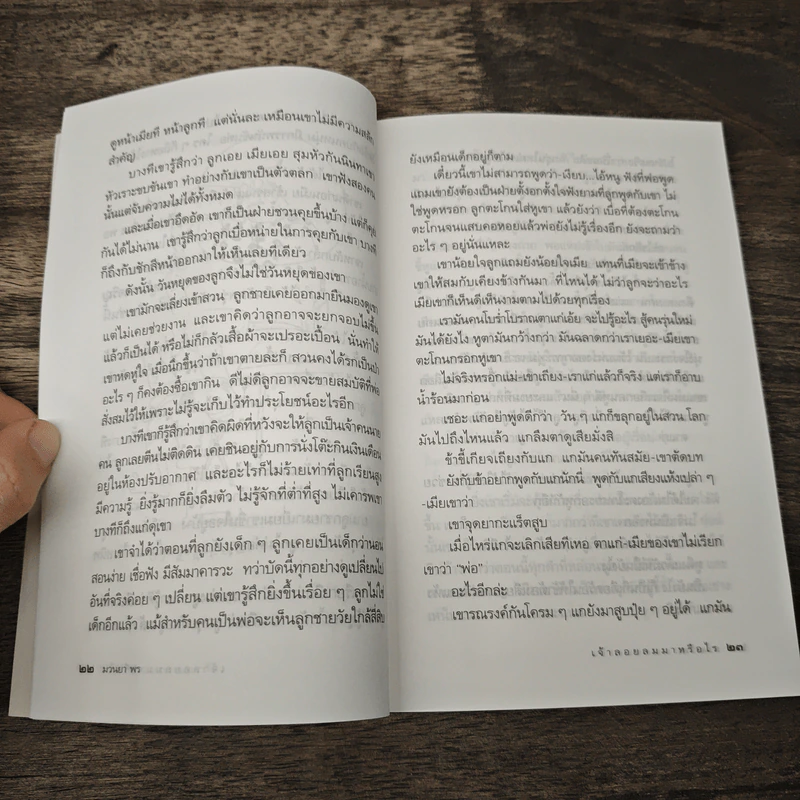 ดูหน้าเมียที หน้าลูกที แต่นั่นละ เหมือนเขาไม่มีความสลัก
สำคัญ
บางทีเขารู้สึกว่า ลูกเอย เมียเอย สุมหัวกันนินทาเขา
หัวเราะขบขันเขา ทำอย่างกับเขาเป็นตัวตลก เขาฟังสองคน
นั้นแต่จับความไม่ได้ทั้งหมด
และเมื่อเขาอึดอัด เขาก็เป็นฝ่ายชวนคุยขึ้นบ้าง แต่ก็คุย
กันได้ไม่นาน เขารู้สึกว่าลูกเบื่อหน่ายในการคุยกับเขา บางที
ก็ถึงกับชักสีหน้าออกมาให้เห็นเลยทีเดียว
ดังนั้น วันหยุดของลูกจึงไม่ใช่วันหยุดของเขา
เขามักจะเลี่ยงเข้าสวน ลูกชายเคยออกมายืนมองดูเขา
แต่ไม่เคยช่วยงาน และเขาคิดว่าลูกอาจจะยกจอบไม่ขึ้น
แล้วก็เป็นได้ หรือไม่ก็กลัวเสื้อผ้าจะเปรอะเปื้อน นั่นทำให้
เขาหดหู่ใจ เมื่อนึกขึ้นว่าถ้าเขาตายละก็ สวนคงได้รกเป็นป่า
อะไร ๆ ก็คงต้องซื้อเขากิน ดีไม่ดีลูกอาจจะขายสมบัติที่พ่อ
สั่งสมไว้ให้เพราะไม่รู้จะเก็บไว้ทำประโยชน์อะไรอีก
บางทีเขาก็รู้สึกว่าเขาคิดผิดที่หวังจะให้ลูกเป็นเจ้าคนนาย
คน ลูกเลยตีนไม่ติดดิน เคยชินอยู่กับการนั่งโต๊ะกินเงินเดือน
อยู่ในห้องปรับอากาศ และอะไรก็ไม่ร้ายเท่าที่ลูกเรียนสูง
มีความรู้ ยิ่งรู้มากก็ยิ่งลืมตัว ไม่รู้จักที่ต่ำที่สูง ไม่เคารพเขา
บางทีก็ถึงแก่ดุเขา
เขาจำได้ว่าตอนที่ลูกยังเด็ก ๆ ลูกเคยเป็นเด็กว่านอน
สอนง่าย เชื่อฟัง มีสัมมาคารวะ ทว่าบัดนี้ทุกอย่างดูเปลี่ยนไป
อันที่จริงค่อย ๆ เปลี่ยน แต่เขารู้สึกยิ่งขึ้นเรื่อย ๆ ลูกไม่ใช่
เด็กอีกแล้ว แม้สำหรับคนเป็นพ่อจะเห็นลูกชายวัยใกล้สี่สิบ
๒๒ มวนยา พร
ยังเหมือนเด็กอยู่ก็ตาม
เดี๋ยวนี้เขาไม่สามารถพูดว่า-เงียบ...ไอ้หนู ฟังที่พ่อพูด
แถมเขายังต้องเป็นฝ่ายตั้งอกตั้งใจฟังยามที่ลูกพูดกับเขา ไม่
ใช่พูดหรอก ลูกตะโกนใส่หูเขา แล้วยังว่า เบื่อที่ต้องตะโกน
ตะโกนจนแสบคอหอยแล้วพ่อยังไม่รู้เรื่องอีก ยังจะถามว่า
อะไร ๆ อยู่นั่นแหละ
เขาน้อยใจลูกแถมยังน้อยใจเมีย แทนที่เมียจะเข้าข้าง
เขาให้สมกับเคียงข้างกันมา ที่ไหนได้ ไม่ว่าลูกจะว่าอะไร
เมียเขาก็เห็นดีเห็นงามตามไปด้วยทุกเรื่อง
เรามันคนโบร่ำโบราณตาแก่เอ้ย จะไปรู้อะไร สู้คนรุ่นใหม่
มันได้ยังไง หูตามันกว้างกว่า มันฉลาดกว่าเราเยอะ-เมียเขา
ตะโกนกรอกหูเขา
ไม่จริงหรอกแม่-เขาเถียง-เราแก่แล้วก็จริง แต่เราก็อาบ
น้ำร้อนมาก่อน
เชอะ แกอย่าพูดดีกว่า วัน ๆ แกก็ขลุกอยู่ในสวน โลก
มันไปถึงไหนแล้ว แกลืมตาดูเสียมั่งสิ
ข้าขี้เกียจเถียงกับแก แกมันคนทันสมัย-เขาตัดบท
ยังกับข้าอยากพูดกับแกนักนี่ พูดกับแกเสียงแห้งเปล่า ๆ
-เมียเขาว่า
เขาจุดยากะแร็ตสูบ
เมื่อไหร่แกจะเลิกเสียทีเหอ ตาแก่-เมียของเขาไม่เรียก
เขาว่า "พ่อ"
อะไรอีกล่ะ
เขารณรงค์กันโครม ๆ แกยังมาสูบปุ๋ย ๆ อยู่ได้ แกมัน
เจ้าลอยลมมาหรือไร ๒๓